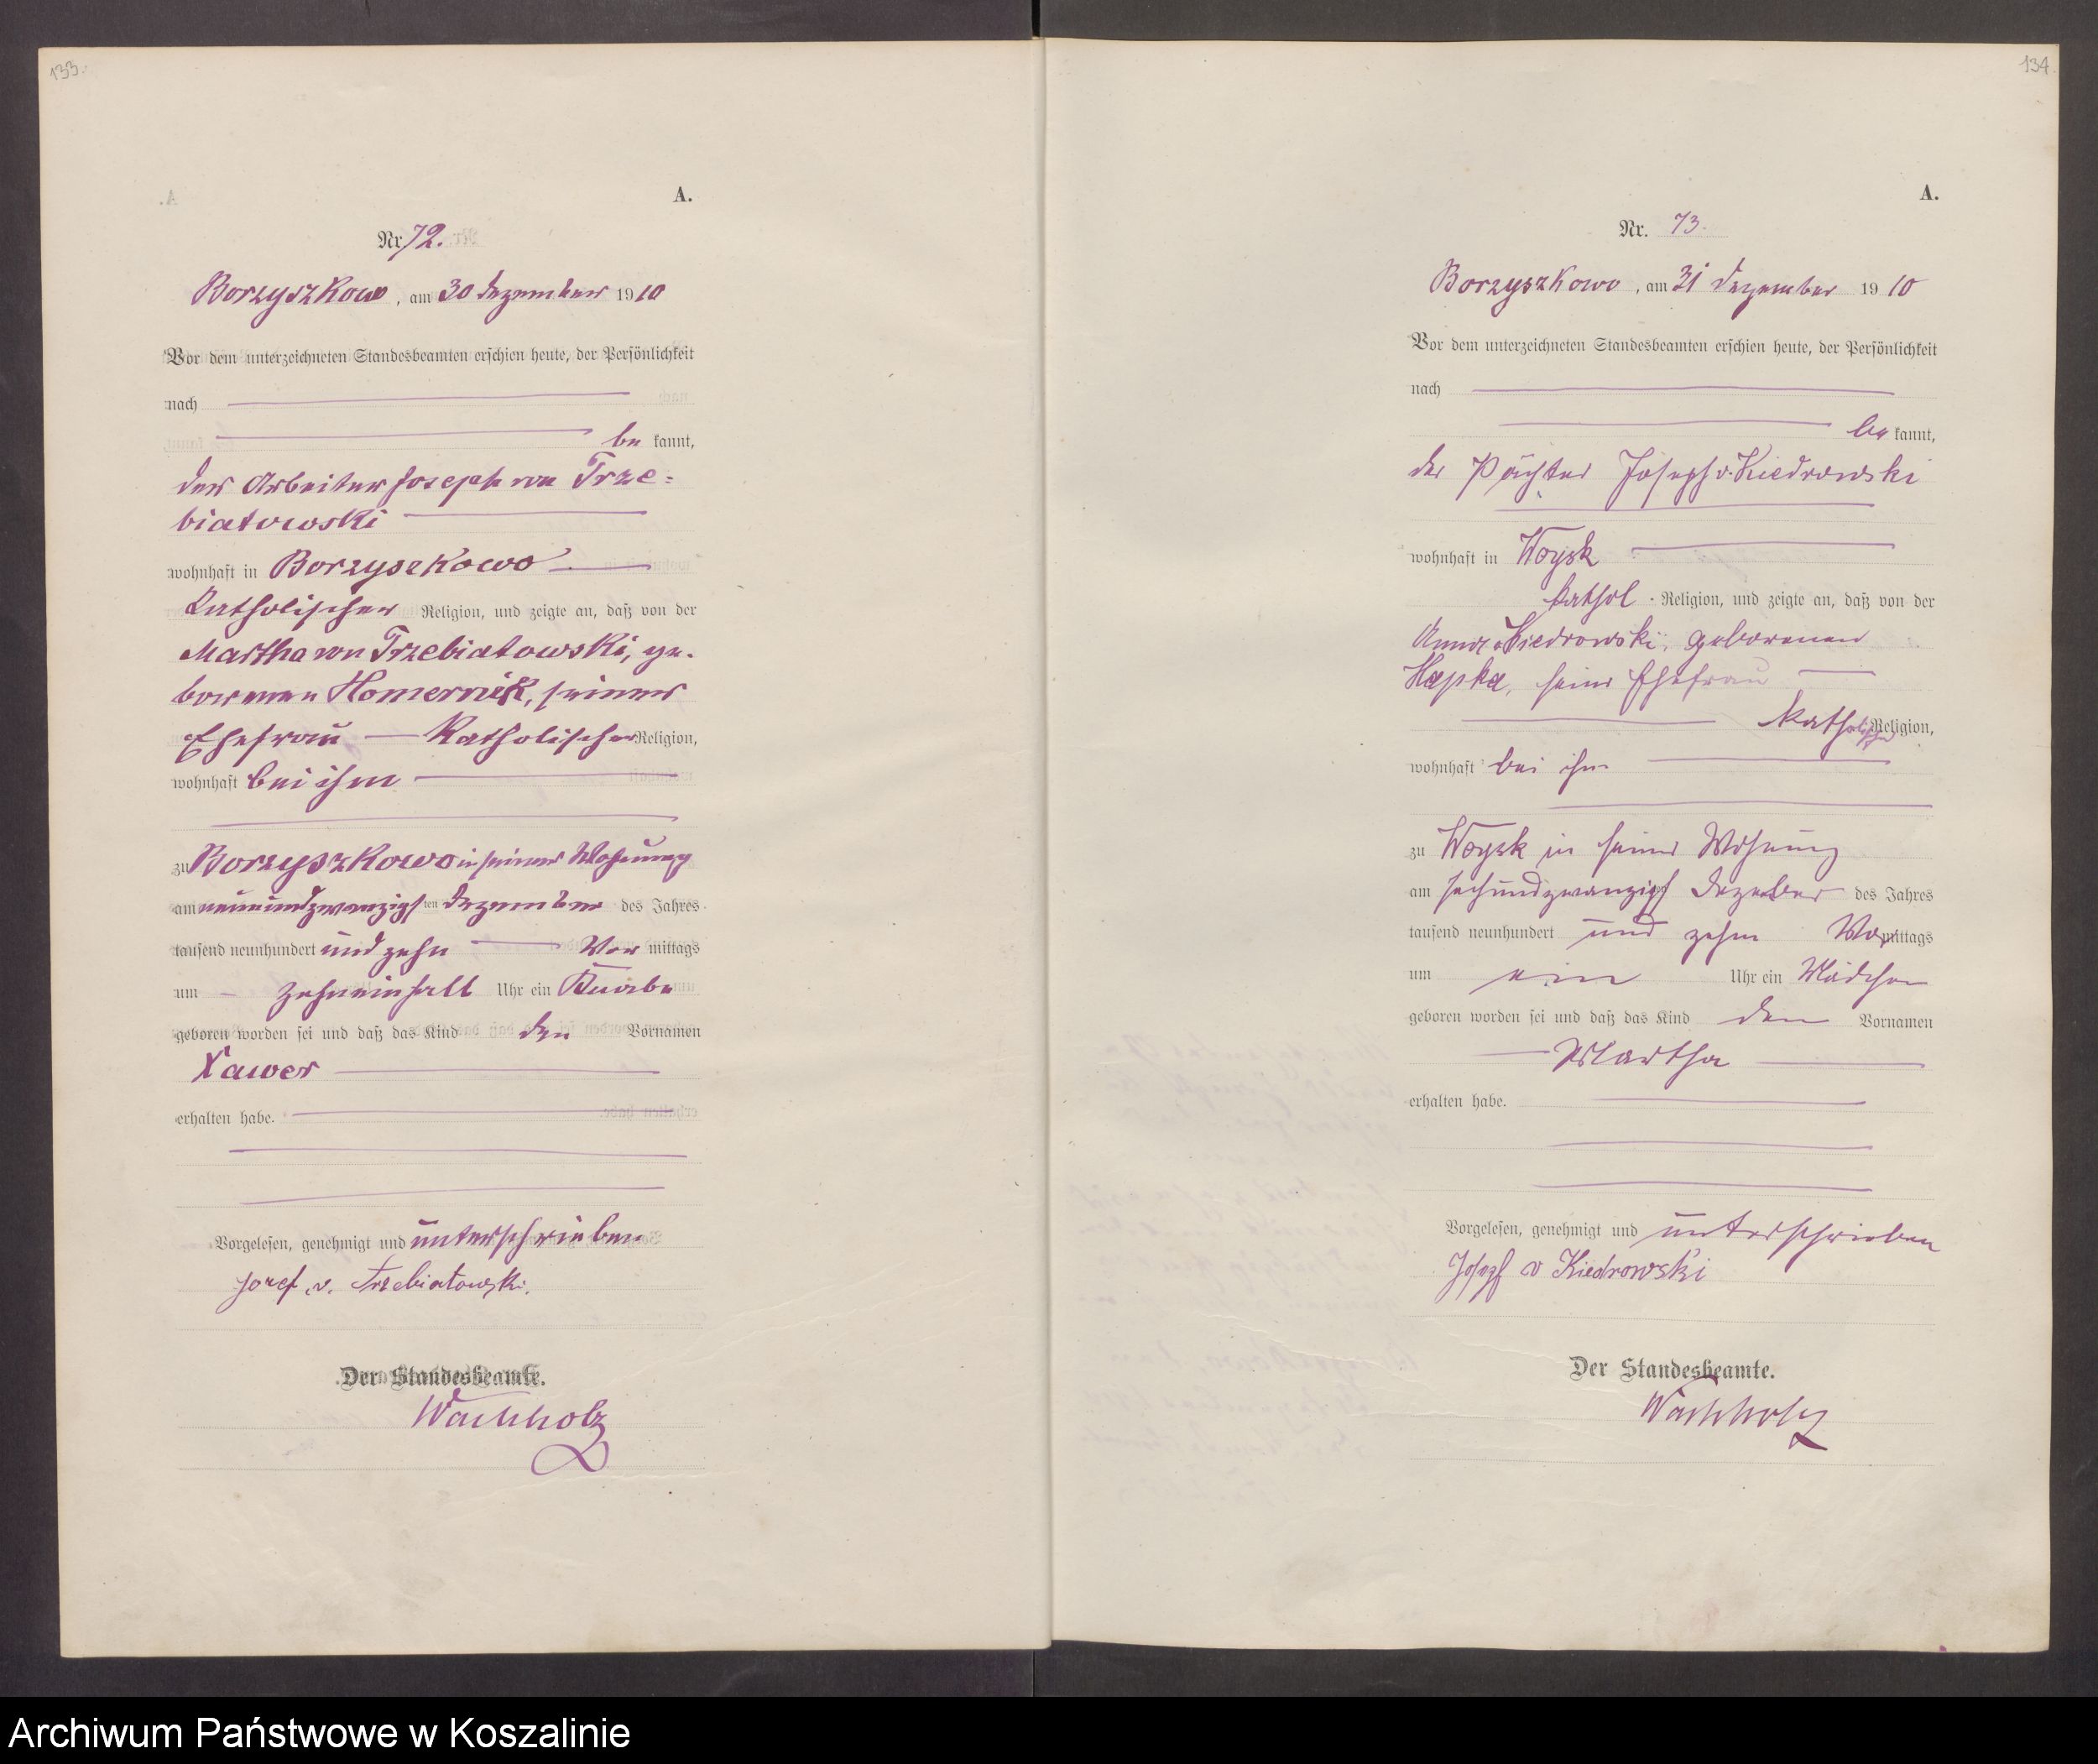 133.
A.
Nr. 72.
Borzyszkowo, am 30 Dezember 1910
Vor dem unterzeichneten Standesbeamten erschien heute, der Persönlichkeit
nach
be kannt,
der Arbeiter Joseph von Trze=
biatowski
wohnhaft in Borzyszkowo
Katholischer Religion, und zeigte an, daß von der
Martha von Trzebiatowski, ge-
borenen Homernik, seiner
Ehefrau Katholischer Religion,
wohnhaft bei ihm
zu Borzyszkowo in seiner Wohnung
am neunundzwanzigsten Dezember des Jahres
tausend neunhundert und zehn Vor mittags
um zehneinhalb Uhr ein Knabe
geboren worden sei und daß das Kind den Vornamen
Xawer
erhalten habe.
Vorgelesen, genehmigt und unterschrieben
Jozef v. Trzebiatowski.
Der Standesbeamte.
Wachholz
134.
A.
Nr. 73.
Borzyszkowo, am 31 Dezember 1910
Vor dem unterzeichneten Standesbeamten erschien heute, der Persönlichkeit
nach
be kannt,
der Pächter Joseph v. Kiedrowski
wohnhaft in Woysk
kathol. Religion, und zeigte an, daß von der
Anna v Kiedrowski, geborenen
Hapka, seine Ehefrau
katholischer Religion,
wohnhaft bei ihm
zu Woysk in seiner Wohnung
am sechsundzwanzigst Dezember des Jahres
tausend neunhundert und zehn Vormittags
um ein Uhr ein Mädchen
geboren worden sei und daß das Kind den Vornamen
Martha
erhalten habe.
Vorgelesen, genehmigt und unterschrieben
Josepf v Kiedrowski
Der Standesbeamte.
Wachholz
Archiwum Państwowe w Koszalinie